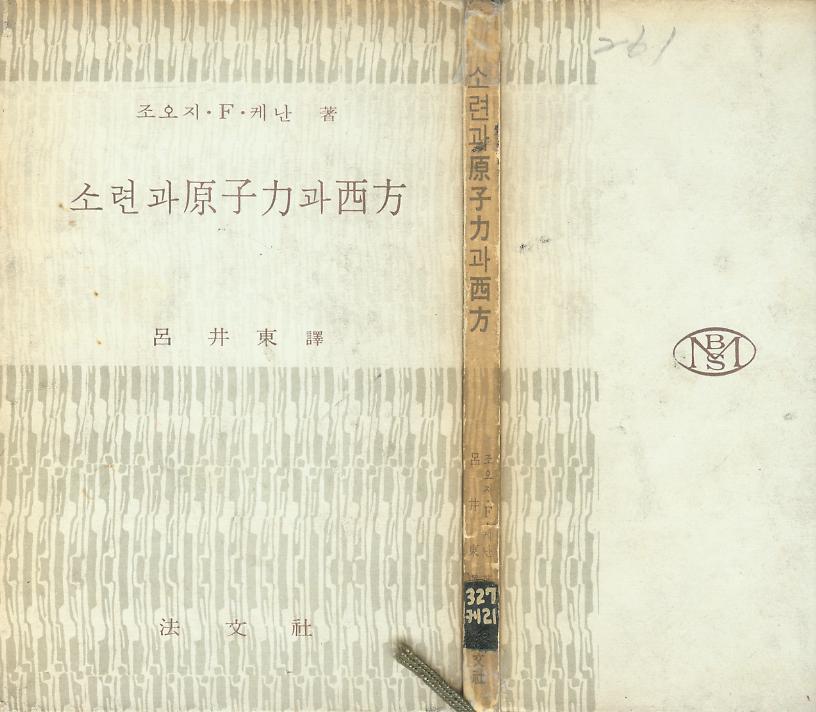 조오지·F·케난 著
소련과原子力과西方
呂井東 譯
法文社
소련과原子力과西方
조오지·F·케난
呂井東
327
케21
文社
261
MBS